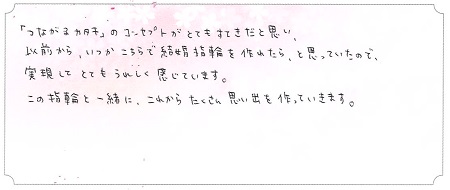 「つながるカタチ」のコンセプトがとてもすてきだと思い、
以前から、いつかこちらで結婚指輪を作れたら、と思っていたので、
実現してとてもうれしく感じています。
この指輪と一緒に、これからたくさん思い出を作っていきます。